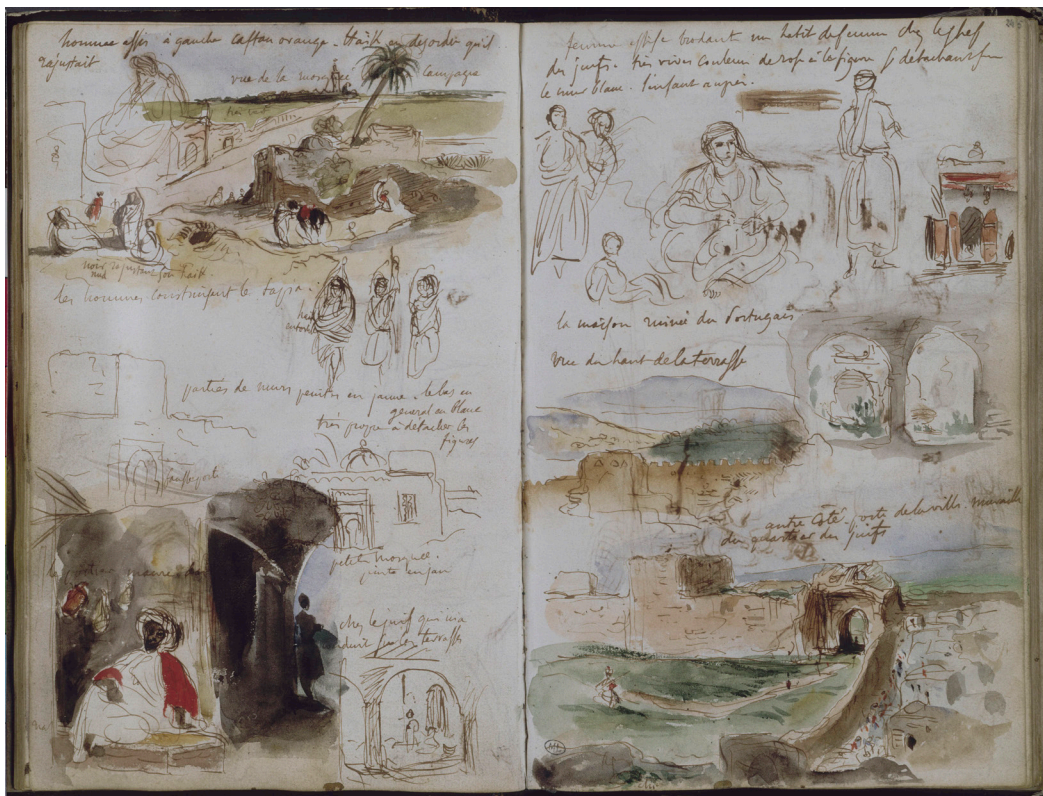 hommee assis à gauche caftan orange - Haïk en desordre qu'il
rajustait
vue de la mosquée
campagne
très
noir rajustant son haik
les hommes construisant le
parties de murs peintes en jaune. le bas en
general en blanc
très propre à detacher les
figures
fausse porte
petite mosquée.
peinte en jaune
chez le juif qui m'a
conduit sur les terrasses
femme assise brodant un habit de femme chez le chef
des juifs. très vives couleur de rose à la figure se detachant sur
le mur blanc. l'enfant auprès.
la maison ruinée du Portugais
vue du haut de la terrasse
autre côté - porte de la ville. muraille
du quartier des juifs